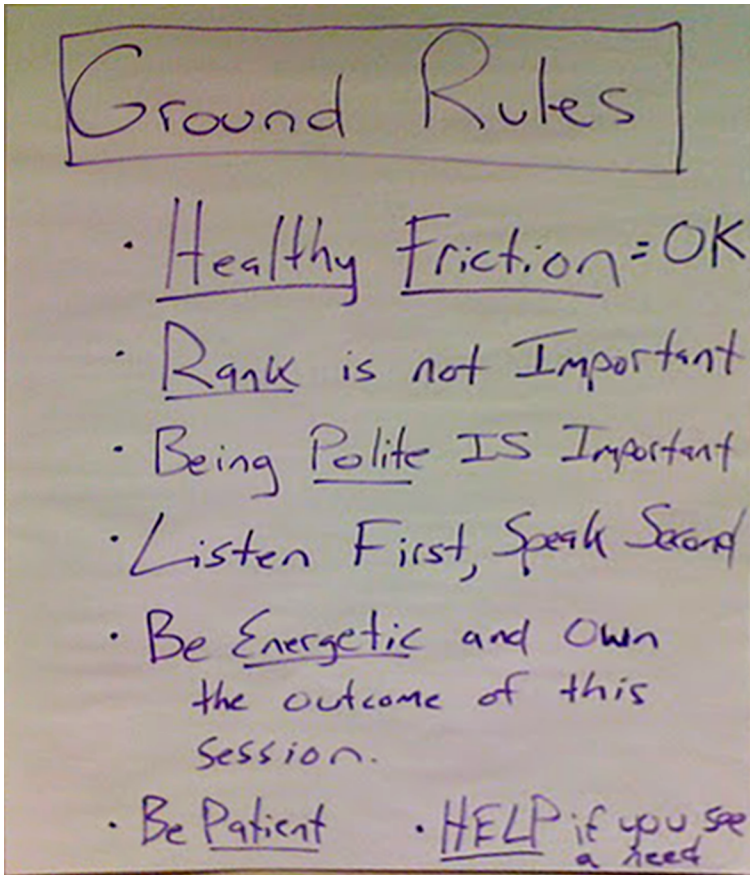 Ground Rules
· Healthy Friction = OK
· Rank is not Important
· Being Polite IS Important
· Listen First, Speak Second
· Be Energetic and Own
the outcome of this
session.
· Be Patient
· HELP if you see
a need